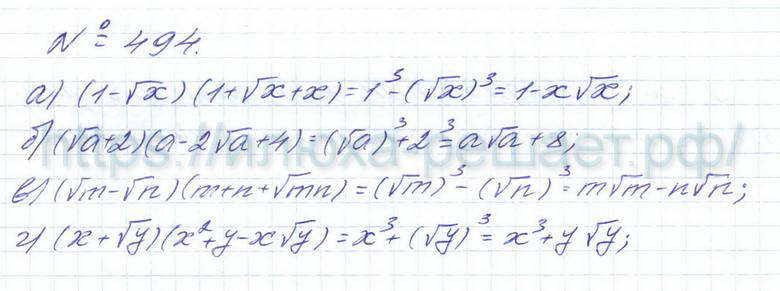 № 494.
а) (1-√x)(1+√x+x)=1³-(√x)³=1-x√x;
б) (√a+2)(a-2√a+4)=(√a)³+2³=a√a+8;
https://илюха-решает.рф/
в) (√m-√n)(m+n+√mn)=(√m)³-(√n)³=m√m-n√n;
г) (x+√y)(x²+y-x√y)=x³+(√y)³=x³+y√y;